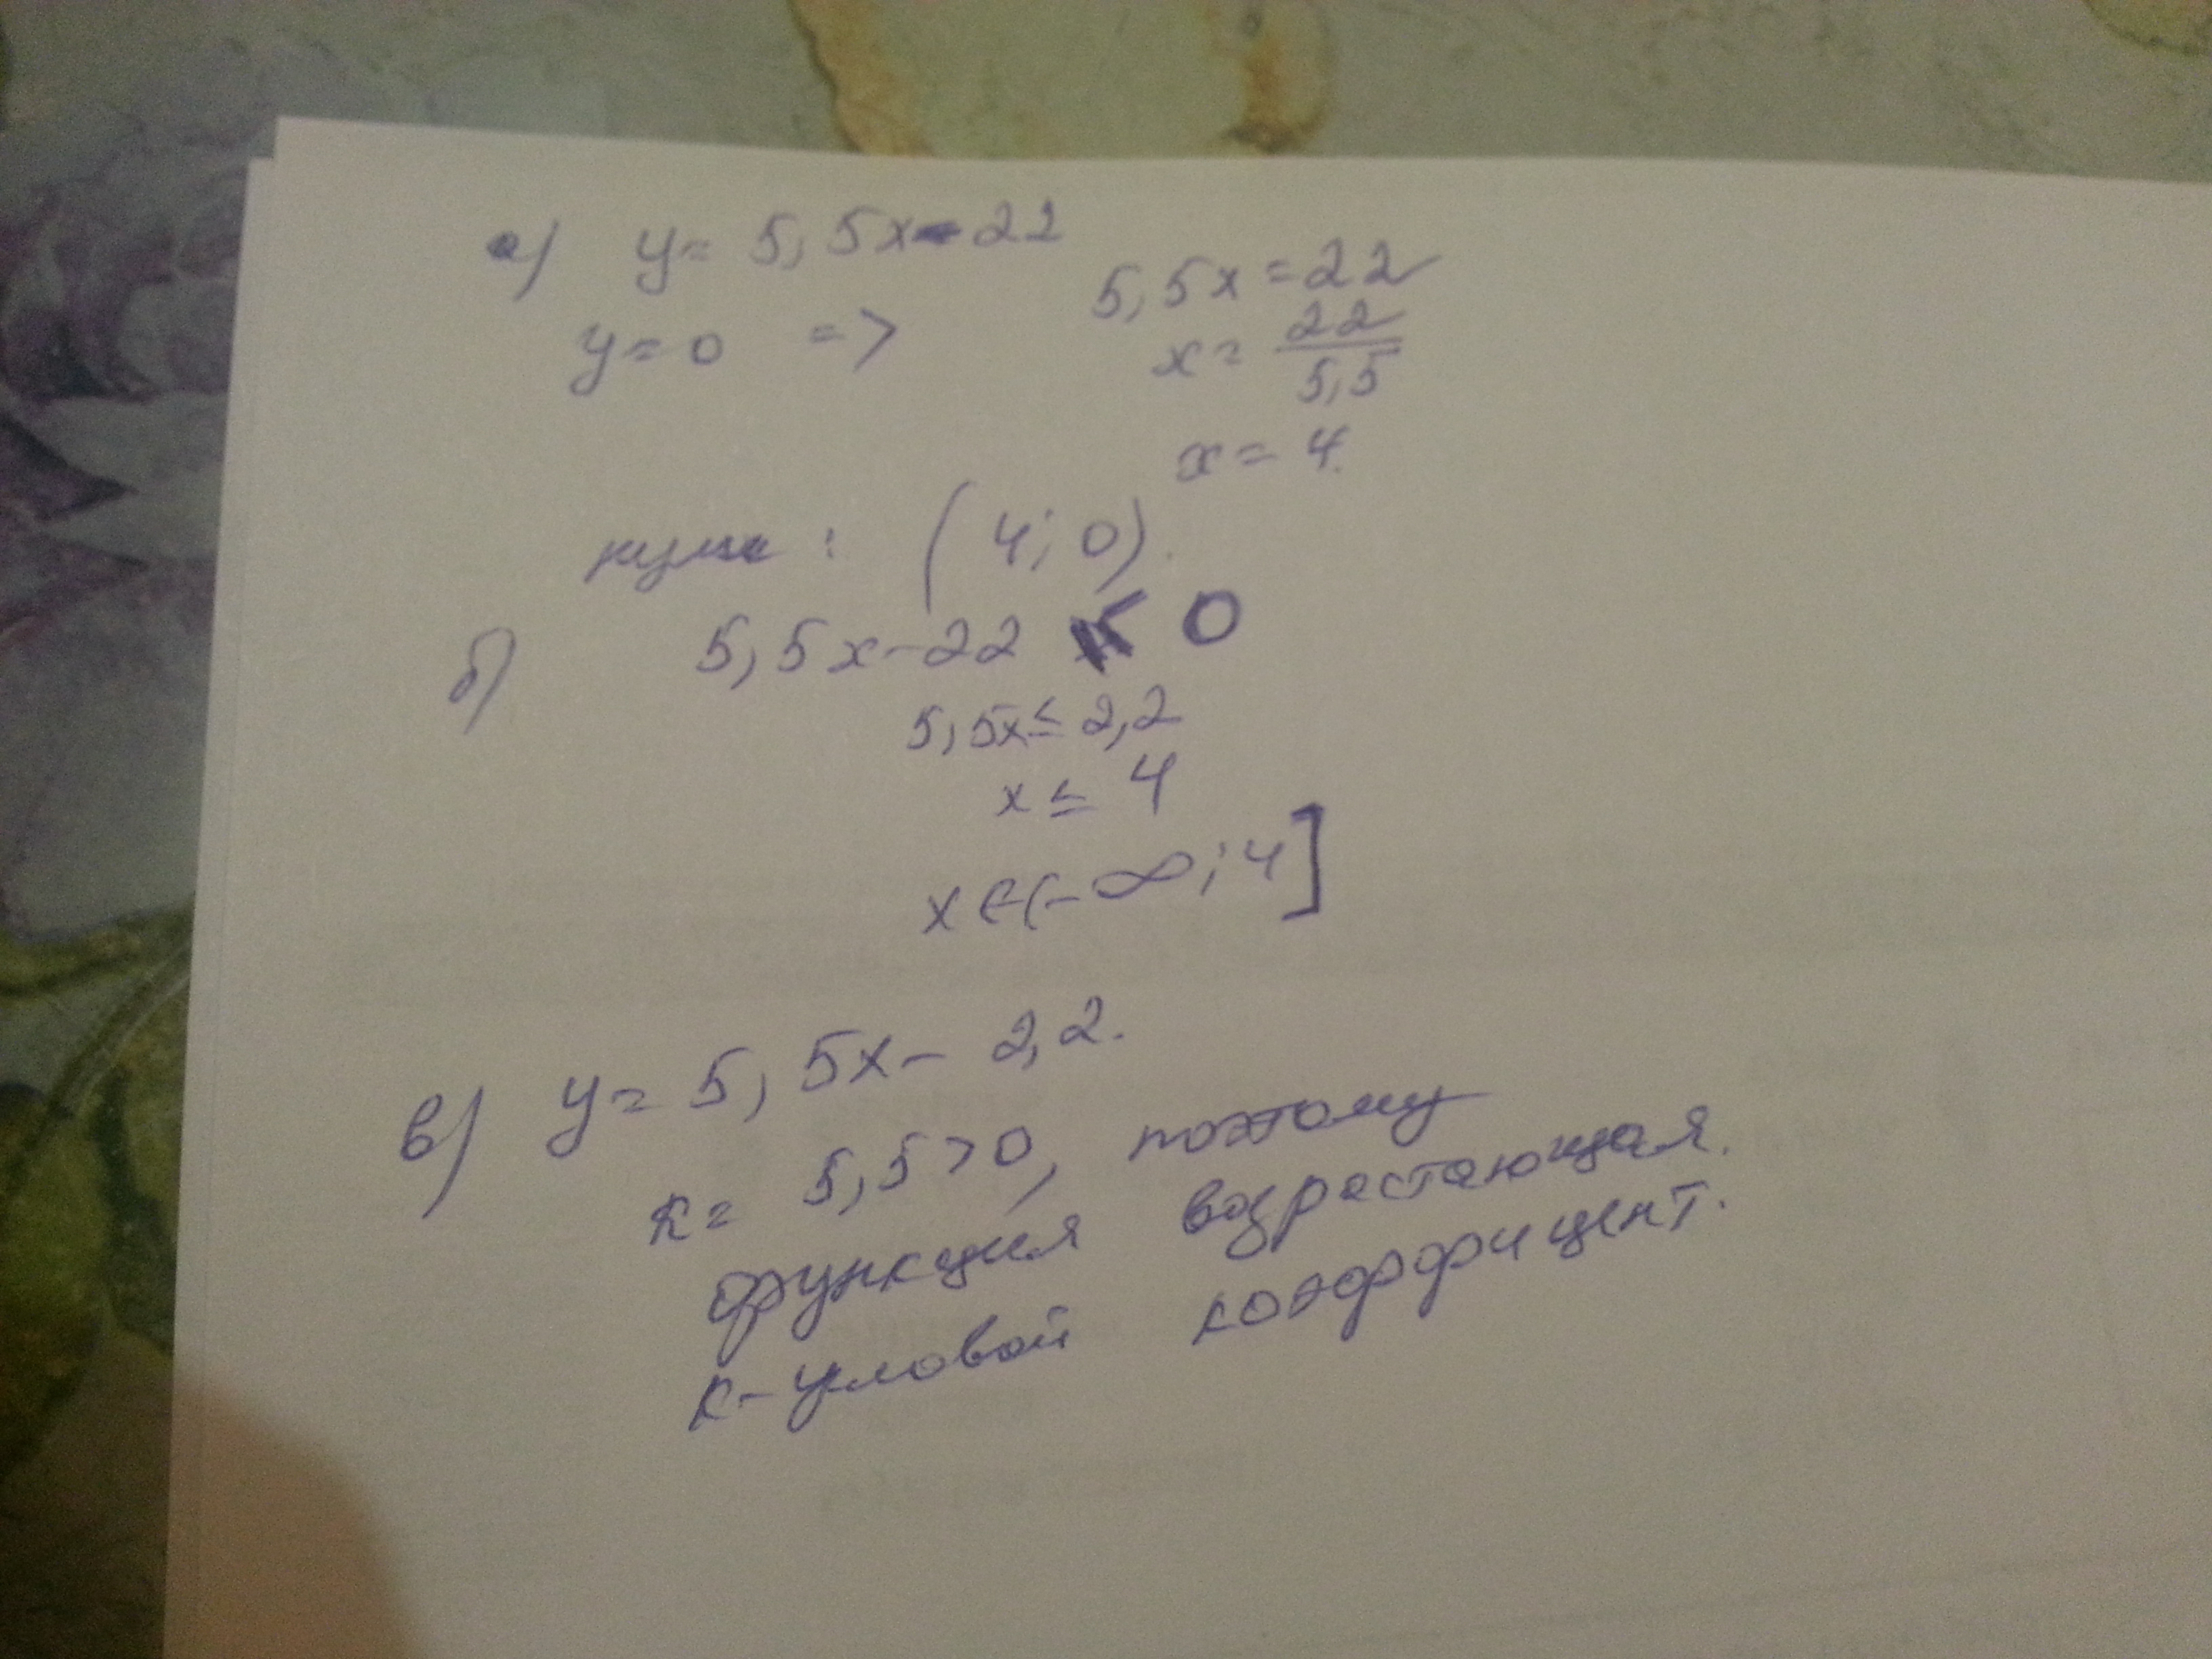 а) y = 5,5x - 22
y = 0 => 5,5x = 22
x = 22/5,5
x = 4.
нули: (4; 0).
б) 5,5x - 22 ≤ 0
5,5x ≤ 2,2
x ≤ 4
x ∈ (-∞; 4]
в) y = 5,5x - 2,2.
к = 5,5 > 0, поэтому
функция возрастающая.
к - угловой коэффициент.